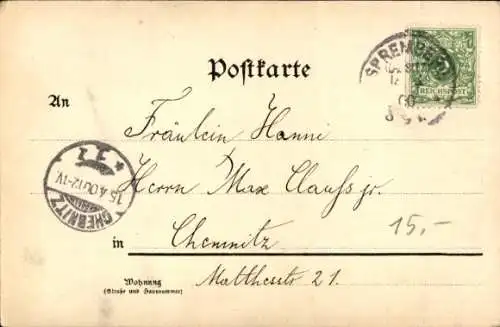 Postkarte
SPREMBERG
REICHSPOST
An
Fräulein Hanni
Herrn Max Clauss jr.
CHEMNITZ
15.4.00.12-1V.
15,-
in Chemnitz
Matthesstr 21.
Wohnung
(Straße und Hausnummer)